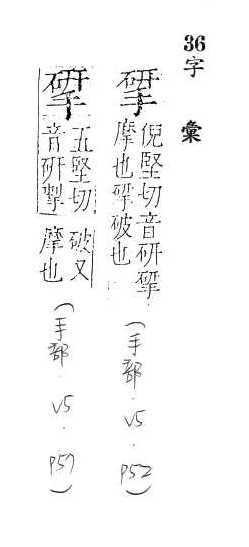 36字彙
揅
倪堅切音研揅
摩也揅破也
(手部.V5.P52)
揅
五堅切 破又
音研揅 摩也
(手部.V5.P57)